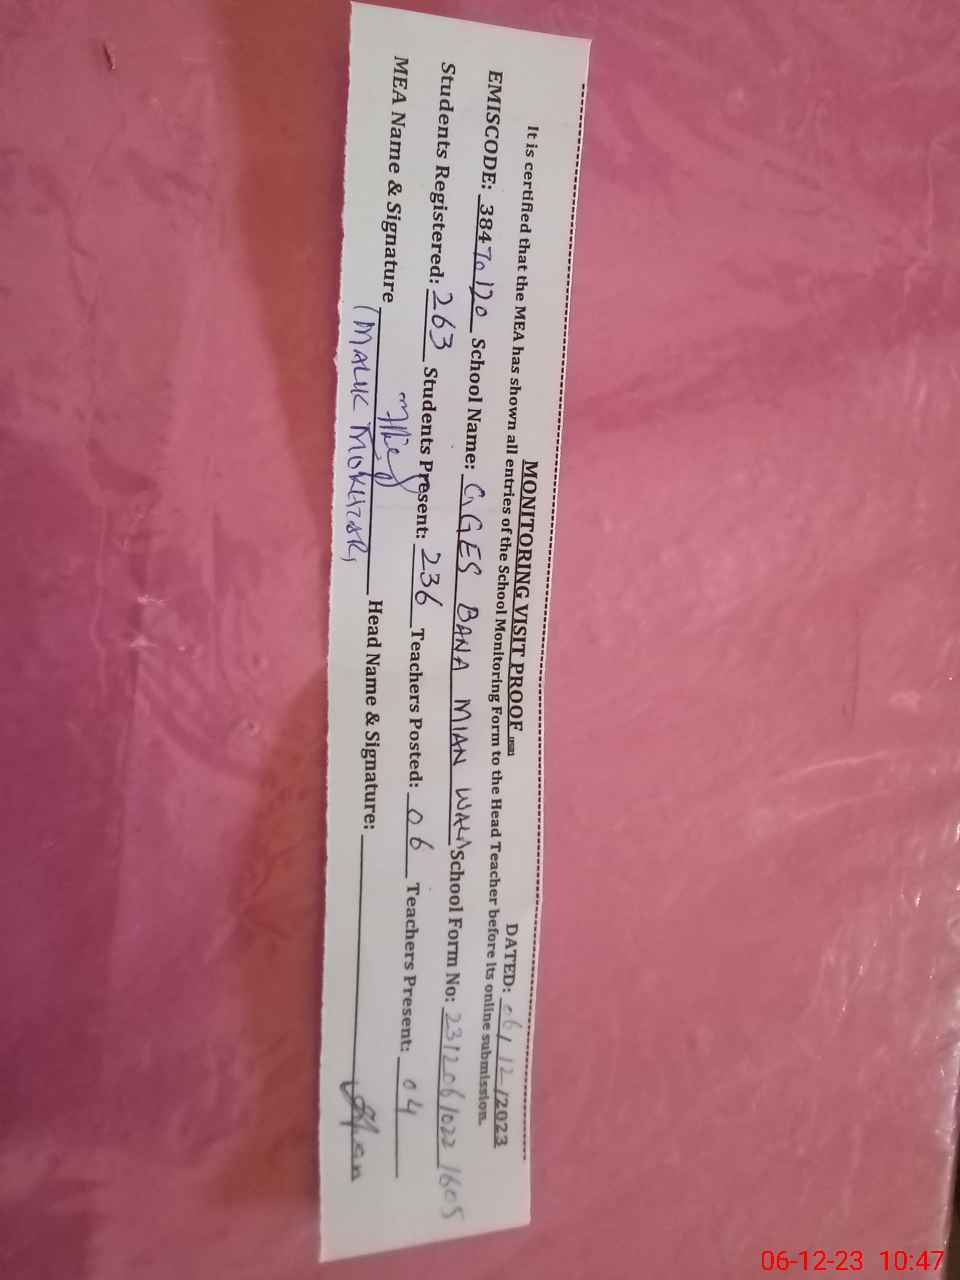 MONITORING VISIT PROOF
DATED: 06/12/2023
It is certified that the MEA has shown all entries of the School Monitoring Form to the Head Teacher before its online submission.
EMISCODE: 38470120 School Name: GGES BANA MIAN WALA School Form No: 23120610221605
Students Registered: 263 Students Present: 236 Teachers Posted: 06 Teachers Present: 04
MEA Name & Signature Head Name & Signature:
(MALIK
06-12-23 10:47